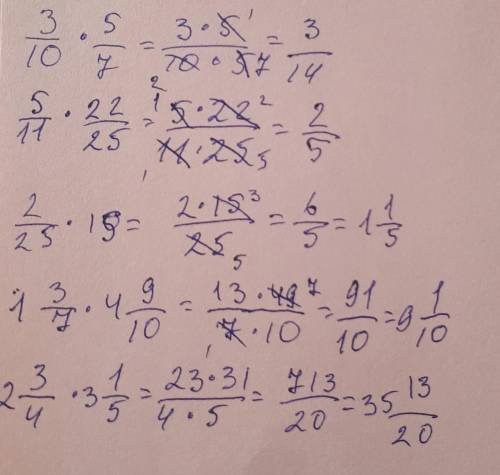 3/10 · 5/7 = 3·5/10·7 = 3/14
5/11 · 22/25 = 5·22/11·25 = 2/5
2/25 · 15 = 2·15/25 = 6/5 = 1 1/5
1 3/7 · 4 9/10 = 13·49/7·10 = 91/10 = 9 1/10
2 3/4 · 3 1/5 = 23·31/4·5 = 713/20 = 35 13/20